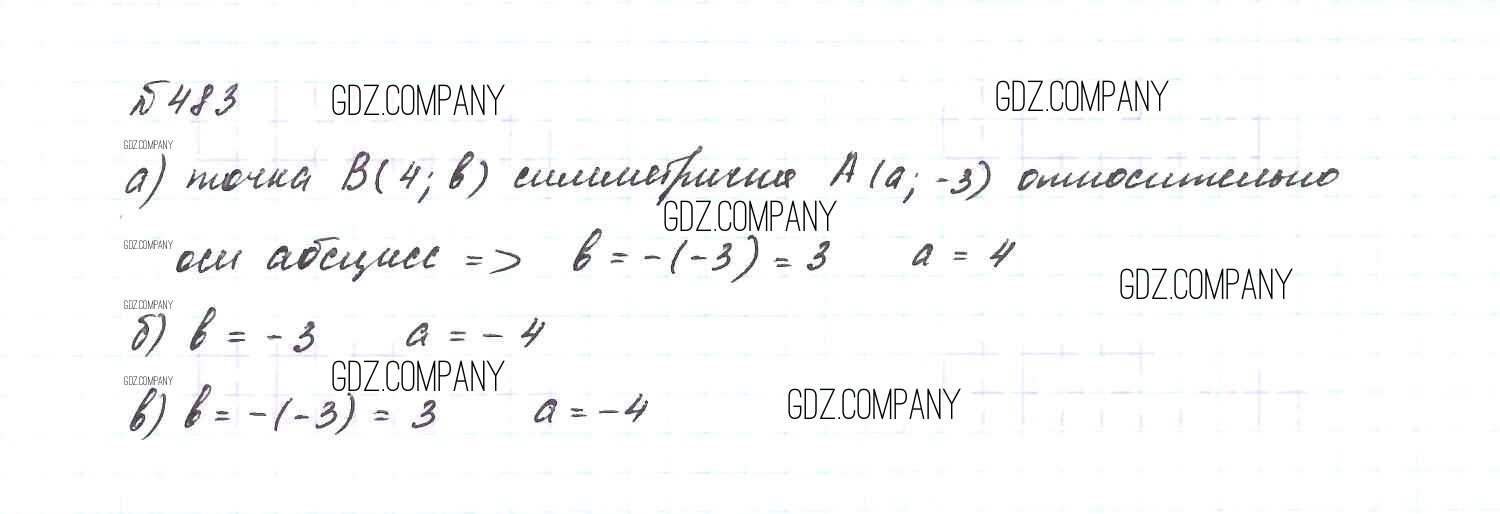 №483 GDZ.COMPANY GDZ.COMPANY
GDZ.COMPANY
а) точка В(4; в) симметрична А(а; -3) относительно
GDZ.COMPANY
GDZ.COMPANY оси абсцисс => в = -(-3) = 3 а = 4
GDZ.COMPANY
GDZ.COMPANY
б) в = -3 а = -4
GDZ.COMPANY GDZ.COMPANY
GDZ.COMPANY
в) в = -(-3) = 3 а = -4